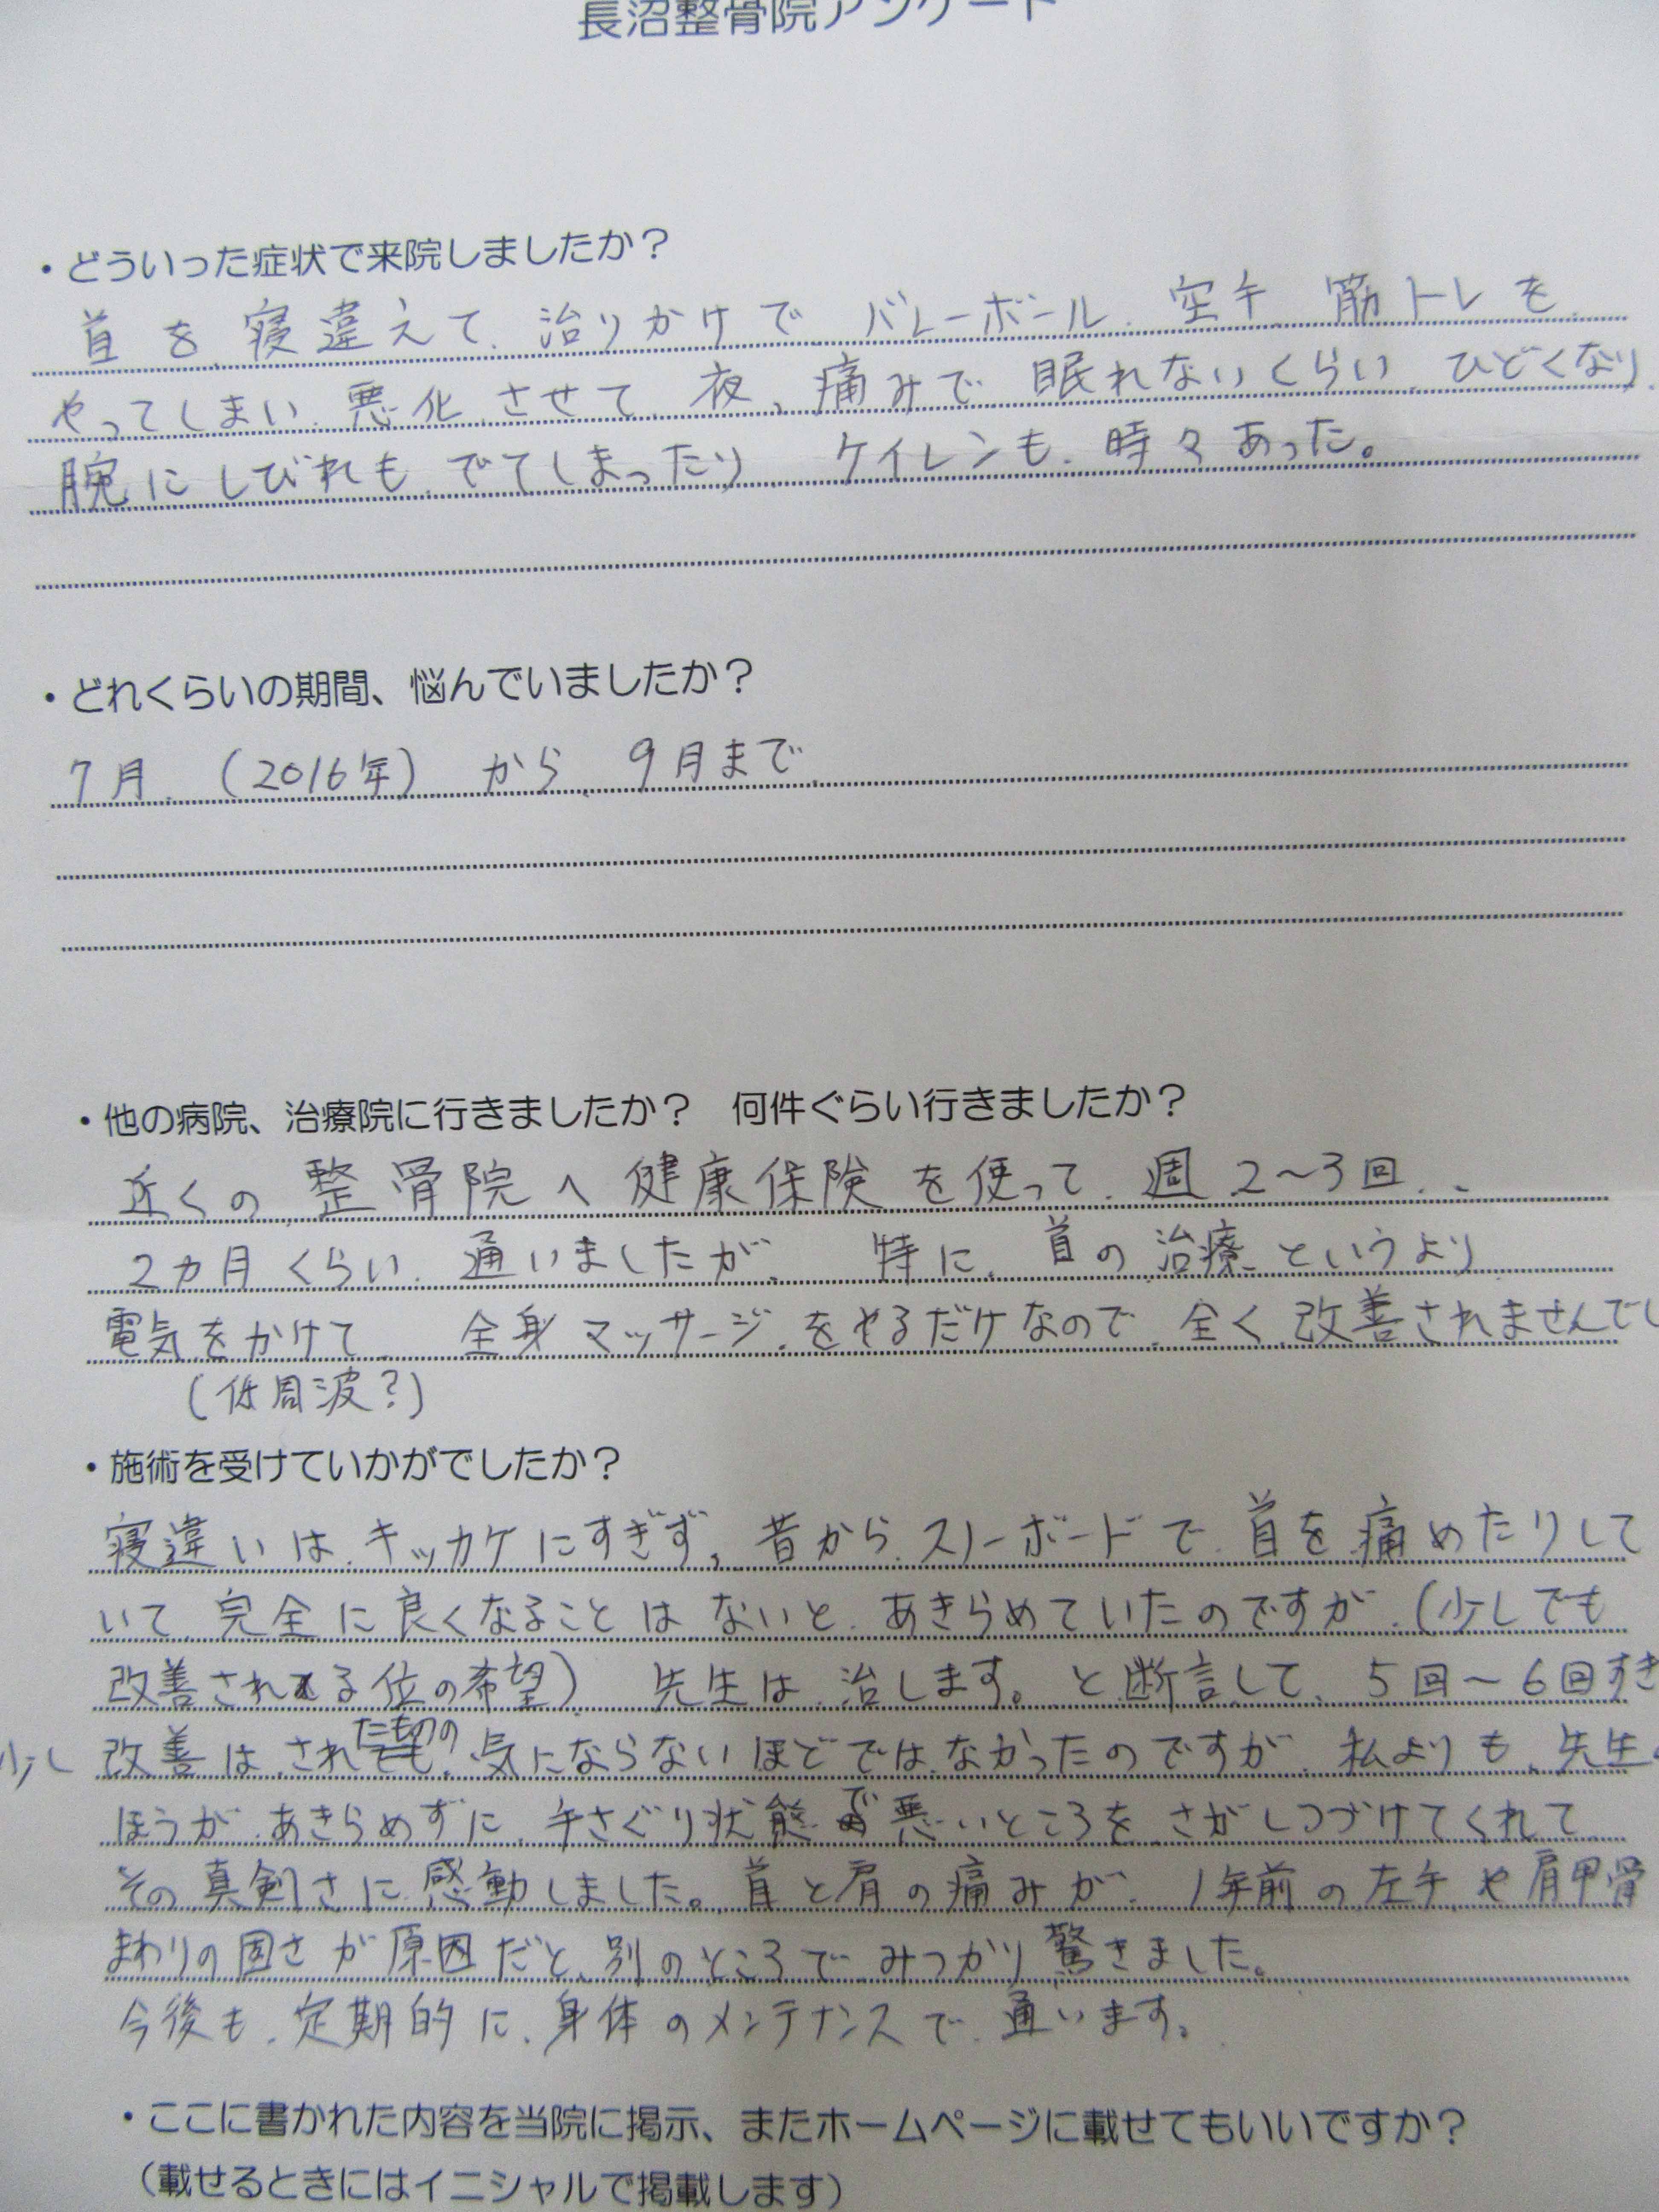 長沼整骨院アンケート
・どういった症状で来院しましたか？
首を寝違えて、治りかけで バレーボール、空手、筋トレを
やってしまい、悪化させて、夜、痛みで 眠れないくらい、ひどくなり、
腕にしびれも、でてしまったり、ケイレンも、時々あった。
・どれくらいの期間、悩んでいましたか？
7月、(2016年) から、9月まで、
・他の病院、治療院に行きましたか？　何件ぐらい行きましたか？
近くの 整骨院へ 健康保険を使って、週2～3回、、
2カ月くらい、通いましたが、 特に、首の治療というより、
電気をかけて、 全身マッサージをやるだけなので、全く改善されませんでし
(低周波？)
・施術を受けていかがでしたか？
寝違いは、キッカケにすぎず、昔から、スノーボードで、首を痛めたりして
いて、完全に良くなることは ないと、あきらめていたのですが、(少しでも
改善される位の希望) 先生は、治します。と断言して、5回～6回すぎ
少し 改善は、されたものの、気にならないほどではなかったのですが、私よりも、先生の
ほうが、あきらめずに、手さぐり状態で悪いところを、さがしつづけてくれて、
その真剣さに感動しました。首と肩の痛みが、1年前の左手や肩甲骨
まわりの固さが原因だと、別のところで みつかり驚きました。
今後も、定期的に、身体のメンテナンスで、通います。
・ここに書かれた内容を当院に掲示、またホームページに載せてもいいですか？
（載せるときにはイニシャルで掲載します）